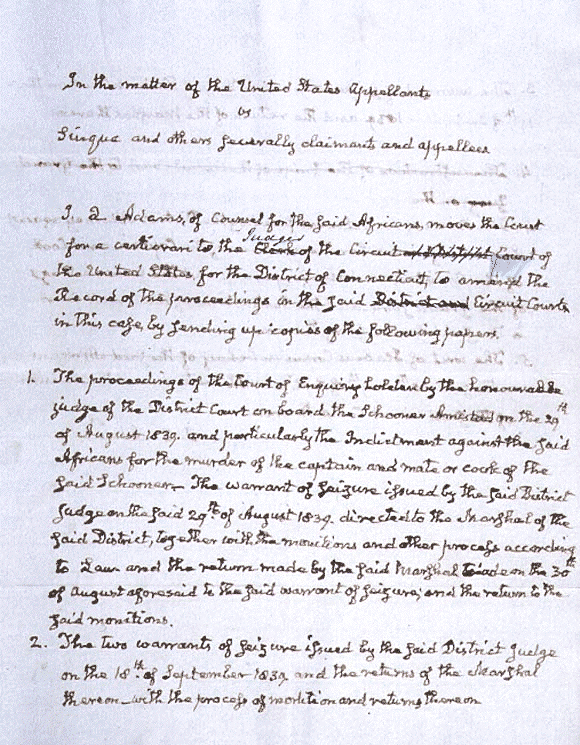 In the matter of the United States Appellants
vs
Sinqua and others severally claimants and appellees
J. Q. Adams, of Counsel for the said Africans, moves the Court
Judges
for a certiorari to the Clerk of the Circuit and District Court of
the United States for the District of Connecticut, to amend the
Record of the proceedings in the said District and Circuit Courts
in this case, by sending up copies of the following papers.
1. The proceedings of the Court of Enquiry holden by the honourable
judge of the District Court on board the Schooner Amistad on the 29th
of August 1839. and particularly the Indictment against the said
Africans for the murder of the captain and mate or cook of the
said Schooner_ The warrant of seizure issued by the said District
Judge on the said 29th of August 1839. directed to the Marshal of the
said District, together with the monitions and other process according
to Law and the return made by the said Marshal on the 30th
of August aforesaid to the said warrant of seizure, and the return to the
said monitions.
2. The two warrants of seizure issued by the said District Judge
on the 18th of September 1839 and the returns of the Marshal
thereon_with the process of monition and returns thereon